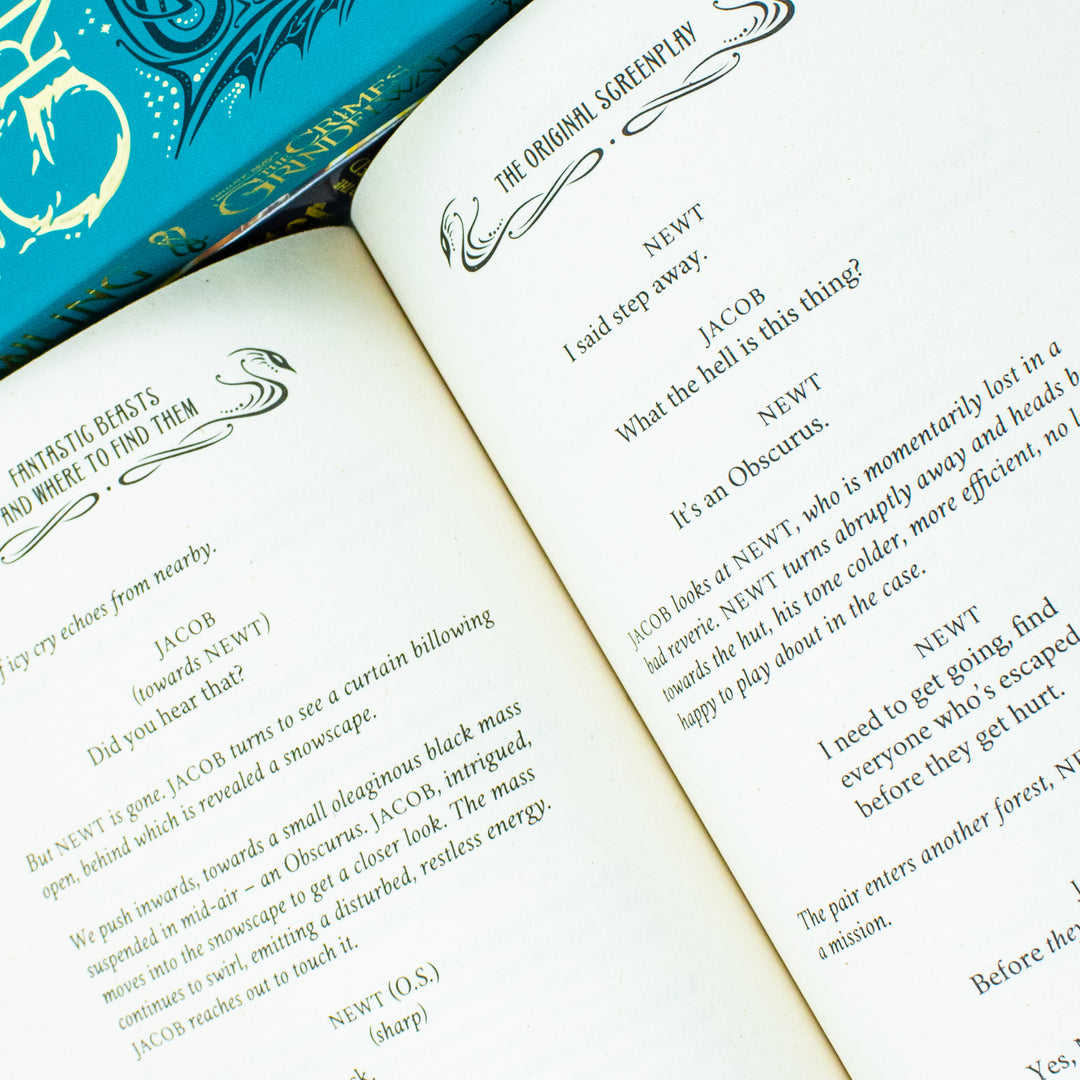 THE CRIMES
GRINDELWALD
FANTASTIC BEASTS
AND WHERE TO FIND THEM
icy cry echoes from nearby.
JACOB
(towards NEWT)
Did you hear that?
But NEWT is gone. JACOB turns to see a curtain billowing
open, behind which is revealed a snowscape.
We push inwards, towards a small oleaginous black mass
suspended in mid-air – an Obscurus. JACOB, intrigued,
moves into the snowscape to get a closer look. The mass
continues to swirl, emitting a disturbed, restless energy.
JACOB reaches out to touch it.
NEWT (O.S.)
(sharp)
THE ORIGINAL SCREENPLAY
NEWT
I said step away.
JACOB
What the hell is this thing?
NEWT
It's an Obscurus.
JACOB looks at NEWT, who is momentarily lost in a
bad reverie. NEWT turns abruptly away and heads
towards the hut, his tone colder, more efficient, no
happy to play about in the case.
NEWT
I need to get going, find
everyone who's escaped
before they get hurt.
The pair enters another forest,
a mission.
Before they
Yes,